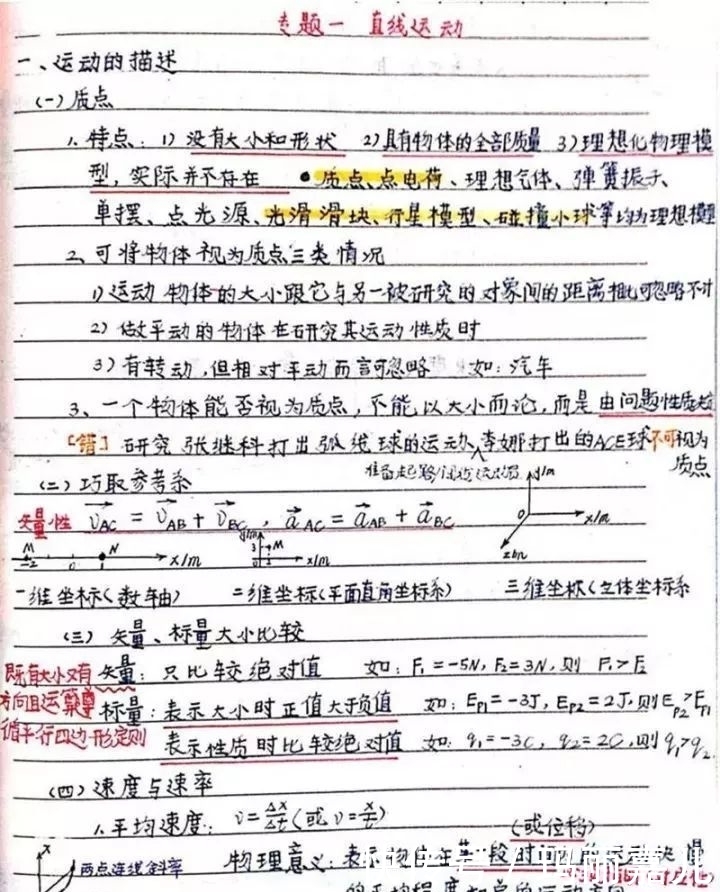 专题一 直线运动
一、运动的描述
(一)质点
1、特点：1) 没有大小和形状 2)具有物体的全部质量 3)理想化物理模
型，实际并不存在 ●质点、点电荷、理想气体、弹簧振子、
单摆、点光源、光滑滑块、行星模型、碰撞小球等均为理想模型
2、可将物体视为质点三类情况
1)运动物体的大小跟它与另一被研究的对象间的距离相比可忽略不计
2) 做平动的物体在研究其运动性质时
3)有转动,但相对平动而言可忽略 如:汽车
3、一个物体能否视为质点,不能以大小而论,而是由问题性质决定
[错] 研究张继科打出弧线球的运动、李娜打出的ACE球不可视为
质点
(二)巧取参考系
矢量性 v_AC = v_AB + v_BC , a_AC = a_AB + a_BC
y/m
x/m
z/m
M -2 0 1 N x/m
y/m 3 M x/m
一维坐标(数轴) 二维坐标(平面直角坐标系) 三维坐标(立体坐标系
(三) 矢量、标量大小比较
既有大小又有 矢量: 只比较绝对值 如: F₁=-5N, F₂=3N, 则 F₁>F₂
方向且运算遵 标量: 表示大小时正值大于负值 如: Ep1=-3J, Ep2=2J,则Ep2>Ep1
循平行四边形定则 表示性质时比较绝对值 如: q₁=-3C, q₂=2C,则q₁>q₂
(四)速度与速率
1、平均速度: v=Δx/Δt(或v=x/t)
(或位移)
x 两点连线斜率 物理意义: 表示物体在某一段时